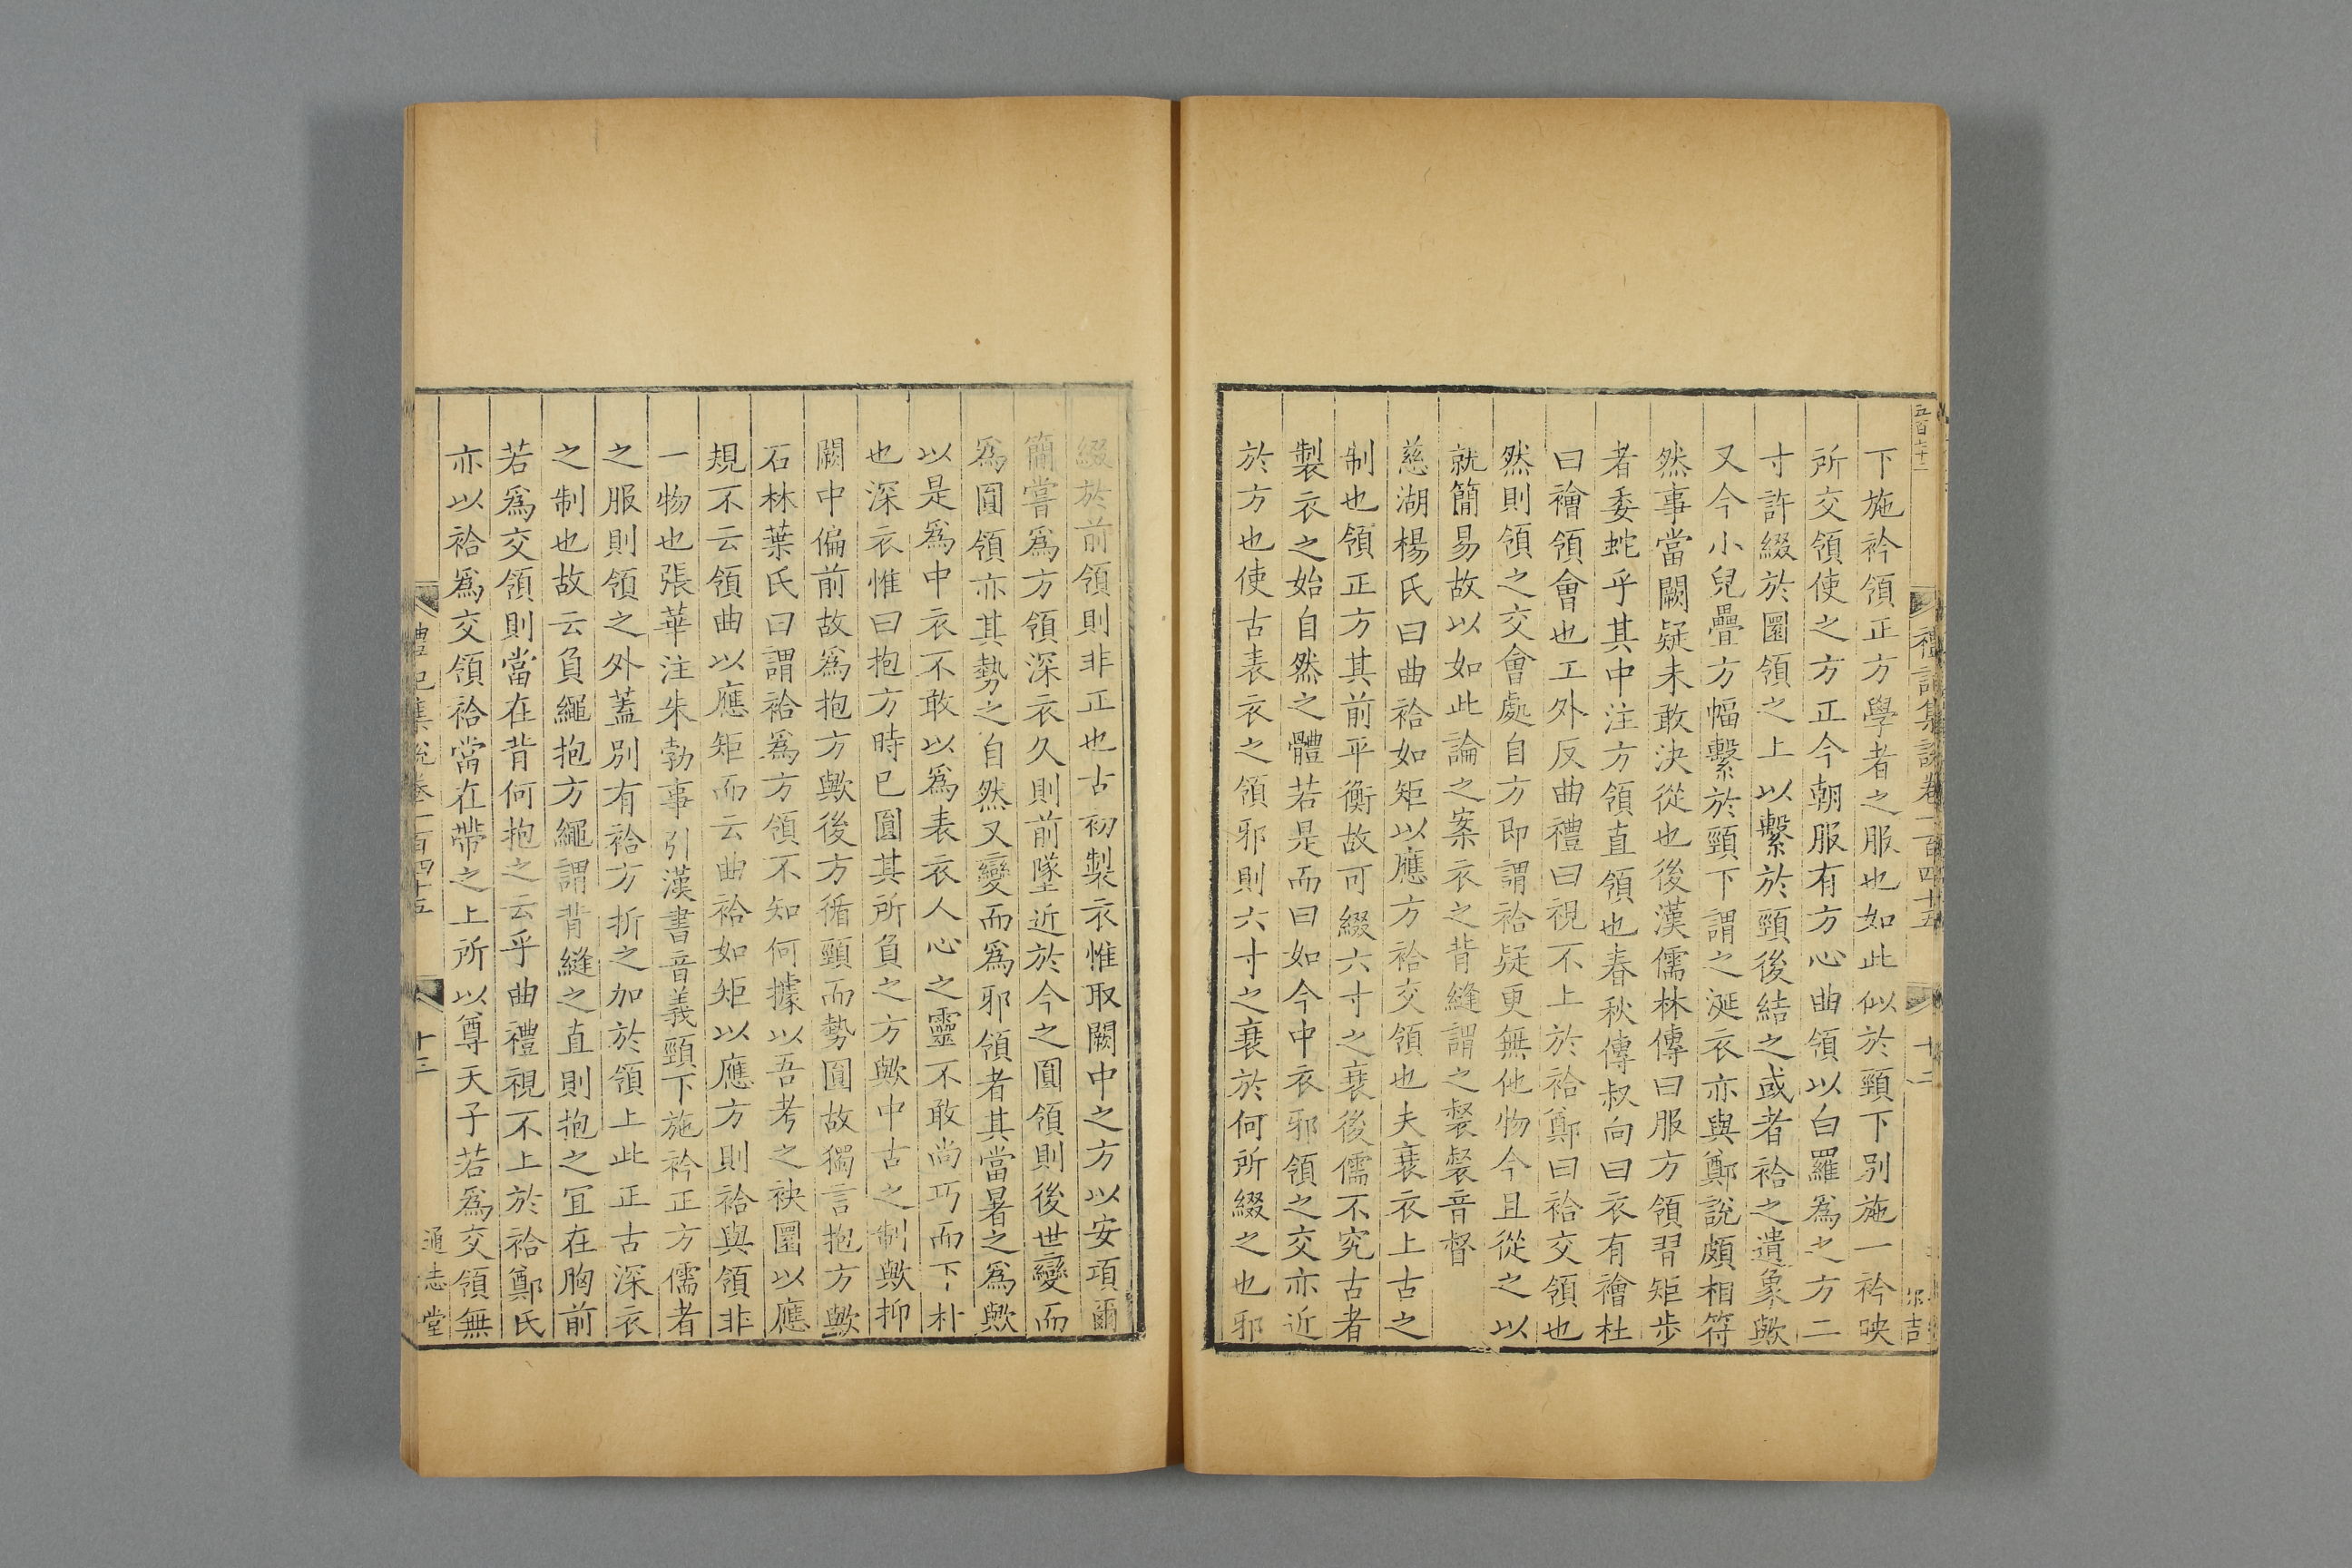 五百六十二
禮記集說卷一百四十五
十二
下施衿領正方學者之服也如此似於頸下別施一衿映
所交領使之方正今朝服有方心曲領以白羅爲之方二
寸許綴於圜領之上以繫於頸後結之或者袷之遺象歟
又今小兒疊方幅繫於頸下謂之涎衣亦與鄭說頗相符
然事當闕疑未敢決從也後漢儒林傳曰服方領習矩步
者委蛇乎其中注方領直領也春秋傳叔向曰衣有襘杜
曰襘領會也工外反曲禮曰視不上於袷鄭曰袷交領也
然則領之交會處自方即謂袷疑更無他物今且從之以
就簡易故以如此論之案衣之背縫謂之裻裻音督
慈湖楊氏曰曲袷如矩以應方袷交領也夫衰衣上古之
制也領正方其前平衡故可綴六寸之衰後儒不究古者
製衣之始自然之體若是而曰如今中衣邪領之交亦近
於方也使古表衣之領邪則六寸之衰於何所綴之也邪
綴於前領則非正也古初製衣惟取闕中之方以安項爾
簡嘗爲方領深衣久則前墜近於今之圓領則後世變而
爲圓領亦其勢之自然又變而爲邪領者其當暑之爲歟
以是爲中衣不敢以爲表衣人心之靈不敢尚巧而下朴
也深衣惟曰抱方時已圓其所負之方歟中古之制歟抑
闕中偏前故爲抱方歟後方循頸而勢圓故獨言抱方歟
石林葉氏曰謂袷爲方領不知何據以吾考之袂圜以應
規不云領曲以應矩而云曲袷如矩以應方則袷與領非
一物也張華注朱勃事引漢書音義頸下施衿正方儒者
之服則領之外蓋別有袷方折之加於領上此正古深衣
之制也故云負繩抱方繩謂背縫之直則抱之宜在胸前
若爲交領則當在背何抱之云乎曲禮視不上於袷鄭氏
亦以袷爲交領袷當在帶之上所以尊天子若爲交領無
禮記集說卷一百四十五
十三
通志堂